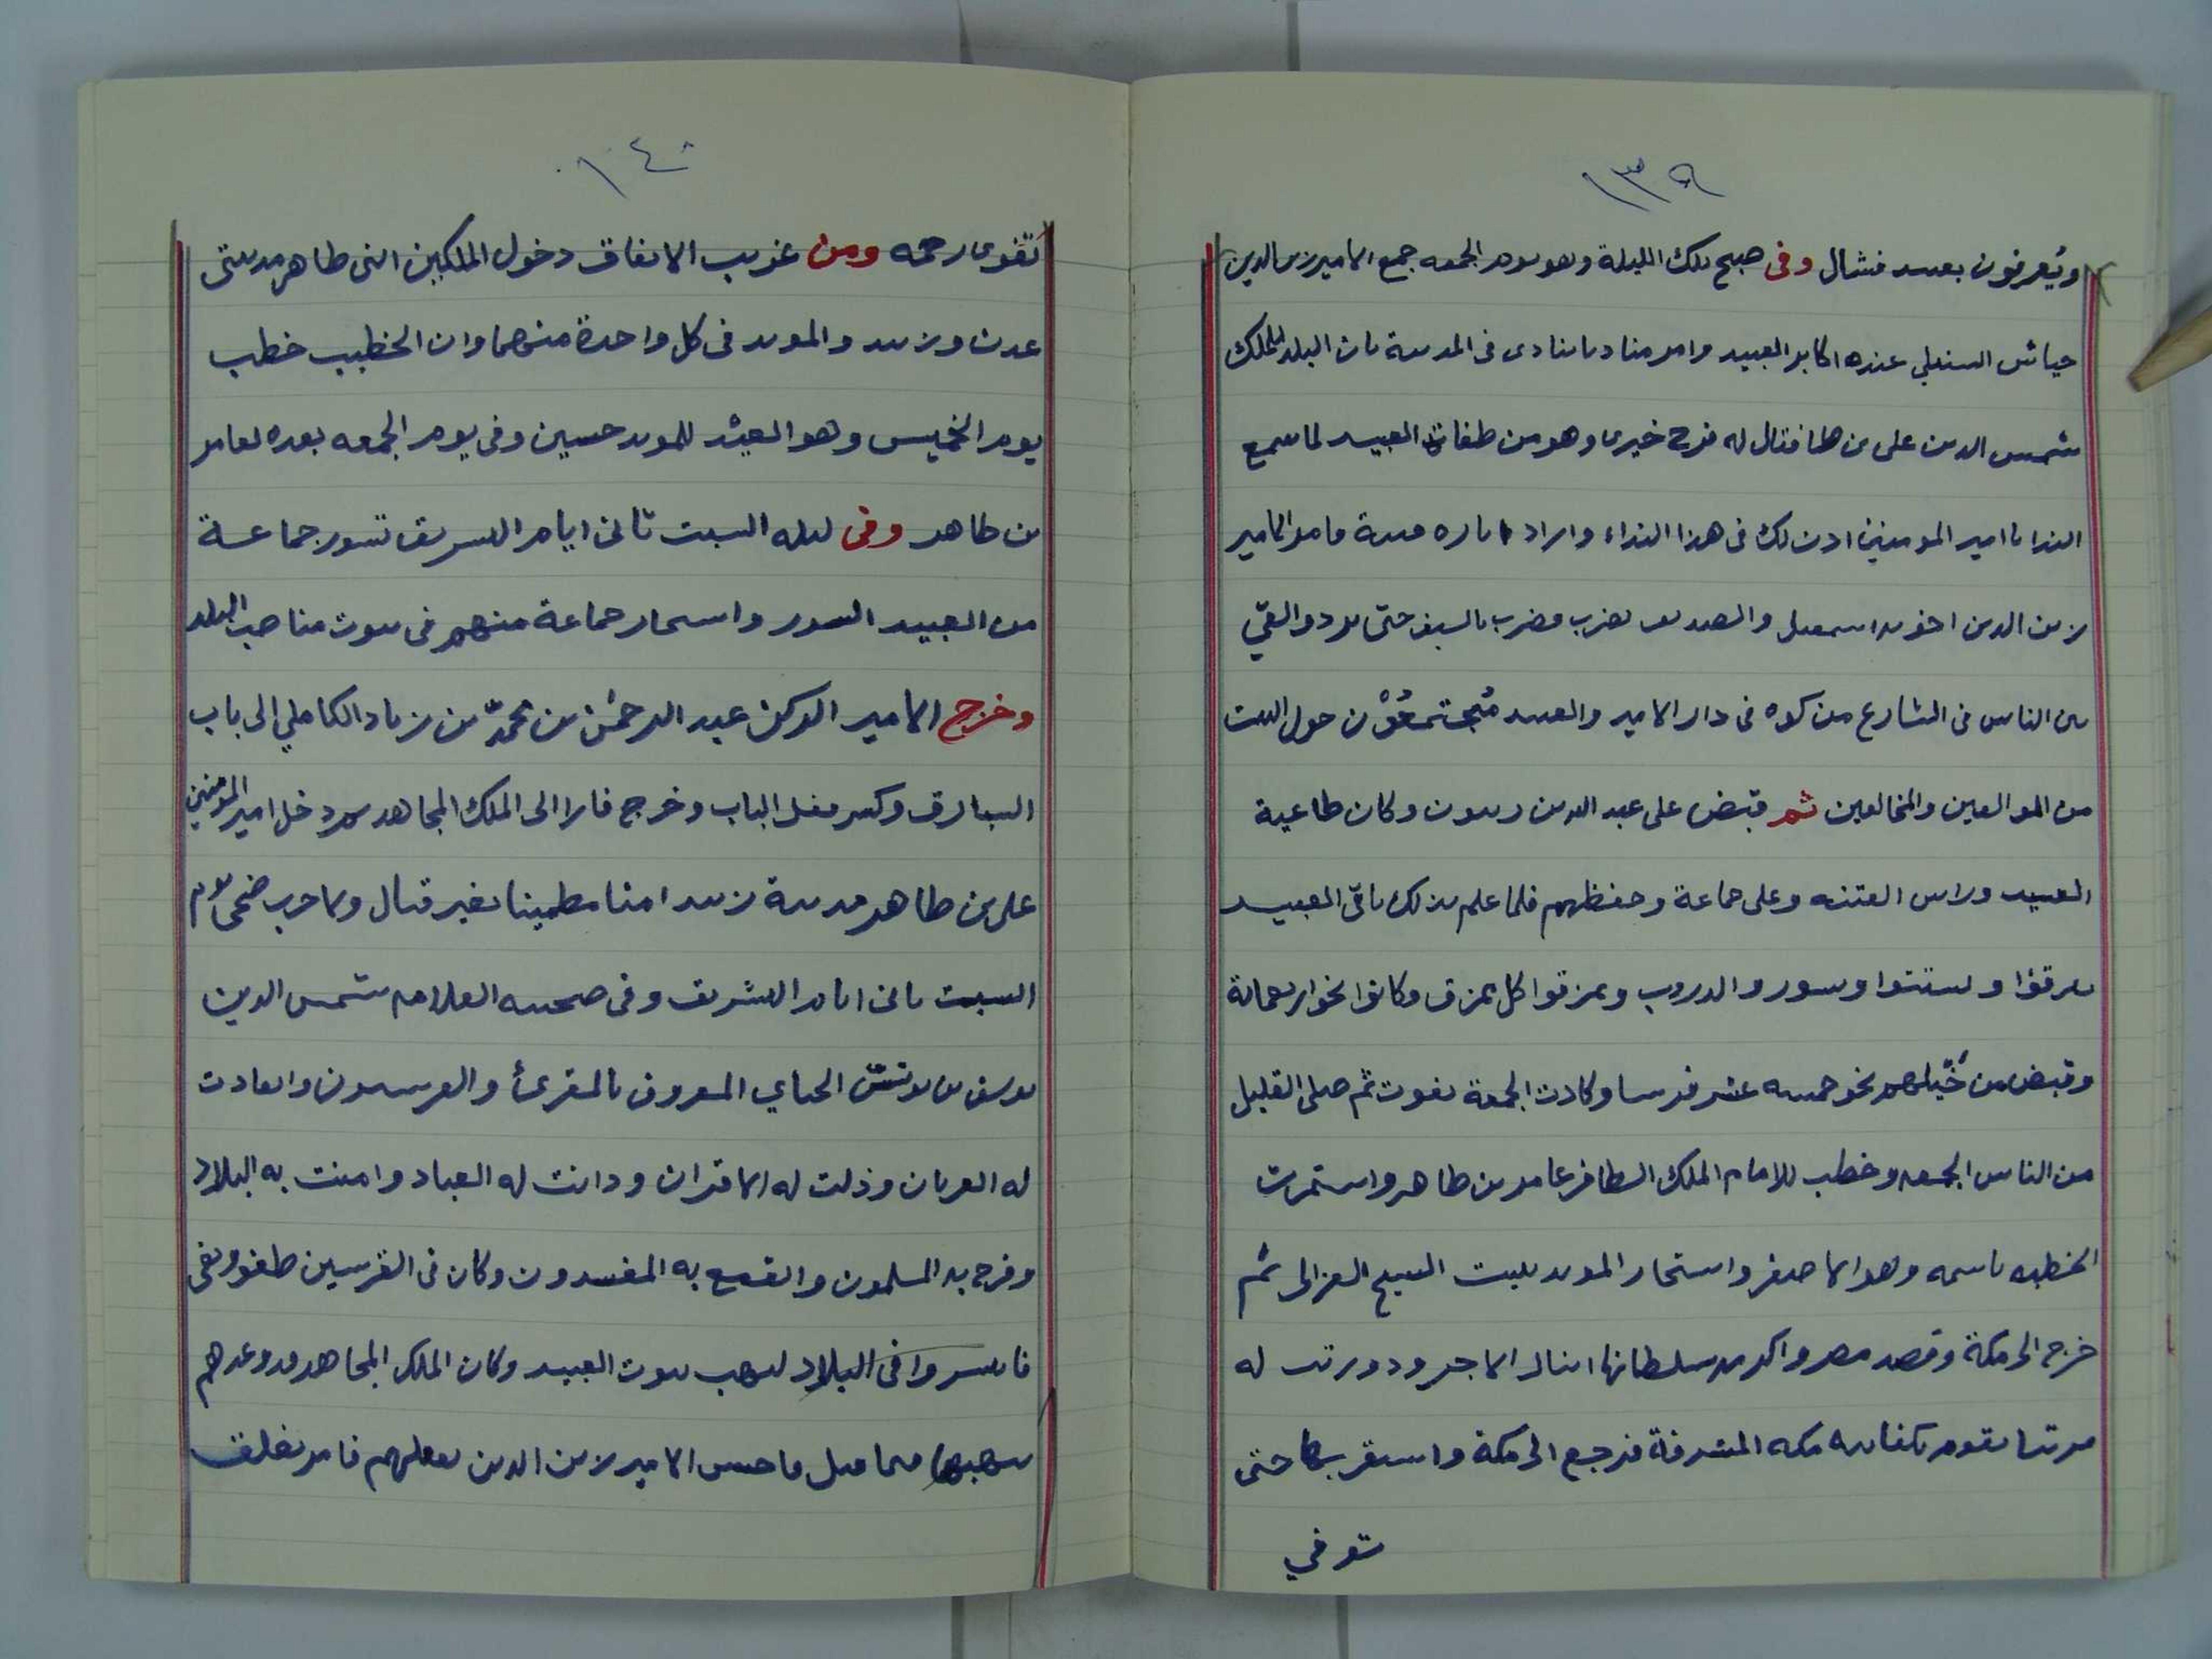 ١٣٩
ويُعرفون بعبيد فشال وفى صبح تلك الليلة وهو يوم الجمعه جمع الامير زين الدين
جياش السنبلي عنده اكابر العبيد وامر مناديا ينادى فى المدينة بان البلد للملك
شمس الدين على بن طا فقال له فرج خيرى وهو من طغاة العبيد لما سمع
الندا يا امير المومنين اذن لك فى هذا النداء واراد اثارة فتنة فامر الامير
زين الدين اخوه اسمعيل والصديق بضرب فضرب بالسيف حتى برد والقي
بين الناس فى الشارع من كوه فى دار الامير والعبيد مُجتمعُوْن حول البيت
من الموالفين والمخالفين ثم قبض على عبد الله بن زيتون وكان طاغية
العبيد وراس الفتنه وعلى جماعة وحفظهم فلما علم بذلك باقي العبيد
تفرقوا وتشتتوا وتسوروا الدروب وتمزقوا كل ممزق وكانوا نحو اربعمائة
وقبض من خَيْلهم نحو خمسه عشر فرسا وكادت الجمعة تفوت ثم صلى القليل
من الناس الجمعه وخطب للامام الملك الظافر عامر بن طاهر واستمرت
الخطبه باسمه وهو الاصغر واستجار المويد ببيت الشيخ الغزالى ثم
خرج الى مكة وقصد مصر واكرمه سلطانها اينال الاجرود ورتب له
مرتبا يقوم بكفايته مكه المشرفة فرجع الى مكة واستقر بها حتى
توفي
١٤٠
تقوى رحمه ومن غريب الاتفاق دخول الملكين ابنى طاهر مدينتى
عدن وزبيد والمويد فى كل واحدة منهما وان الخطيب خطب
يوم الخميس وهو العيْد للمويد حسين وفى يوم الجمعه بعده لعامر
بن طاهر وفى ليله السبت ثانى ايام التشريق تسور جماعة
من العبيد السور واستجار جماعة منهم فى بيوت مناصب البلد
وخرج الامير الركن عبد الرحمٰن بن محمدّ بن زياد الكاملي الى باب
الشبارق وكسر مقفل الباب وخرج فارا الى الملك المجاهد ثم دخل امير المؤمنين
على بن طاهر مدينة زبيد امنا مطمينا بغير قتال ولا حرب ضحى يوم
السبت ثانى ايام التشريق وفى صحبته العلامه شمس الدين
يوسف بن يونس الجبائي المعروف بالمقرئ والقرشيون وانقادت
له العربان وذلت له الاقران ودانت له العباد وامنت به البلاد
وفرح به المسلمون وانقمع به المفسدون وكان فى القرشيين طغو وبغى
فانتشروا فى البلاد لنهب بيوت العبيد وكان الملك المجاهد قد وعدهم
بنهبها فيما قيل فاحس الامير زين الدين بفعلهم فامر بغلق